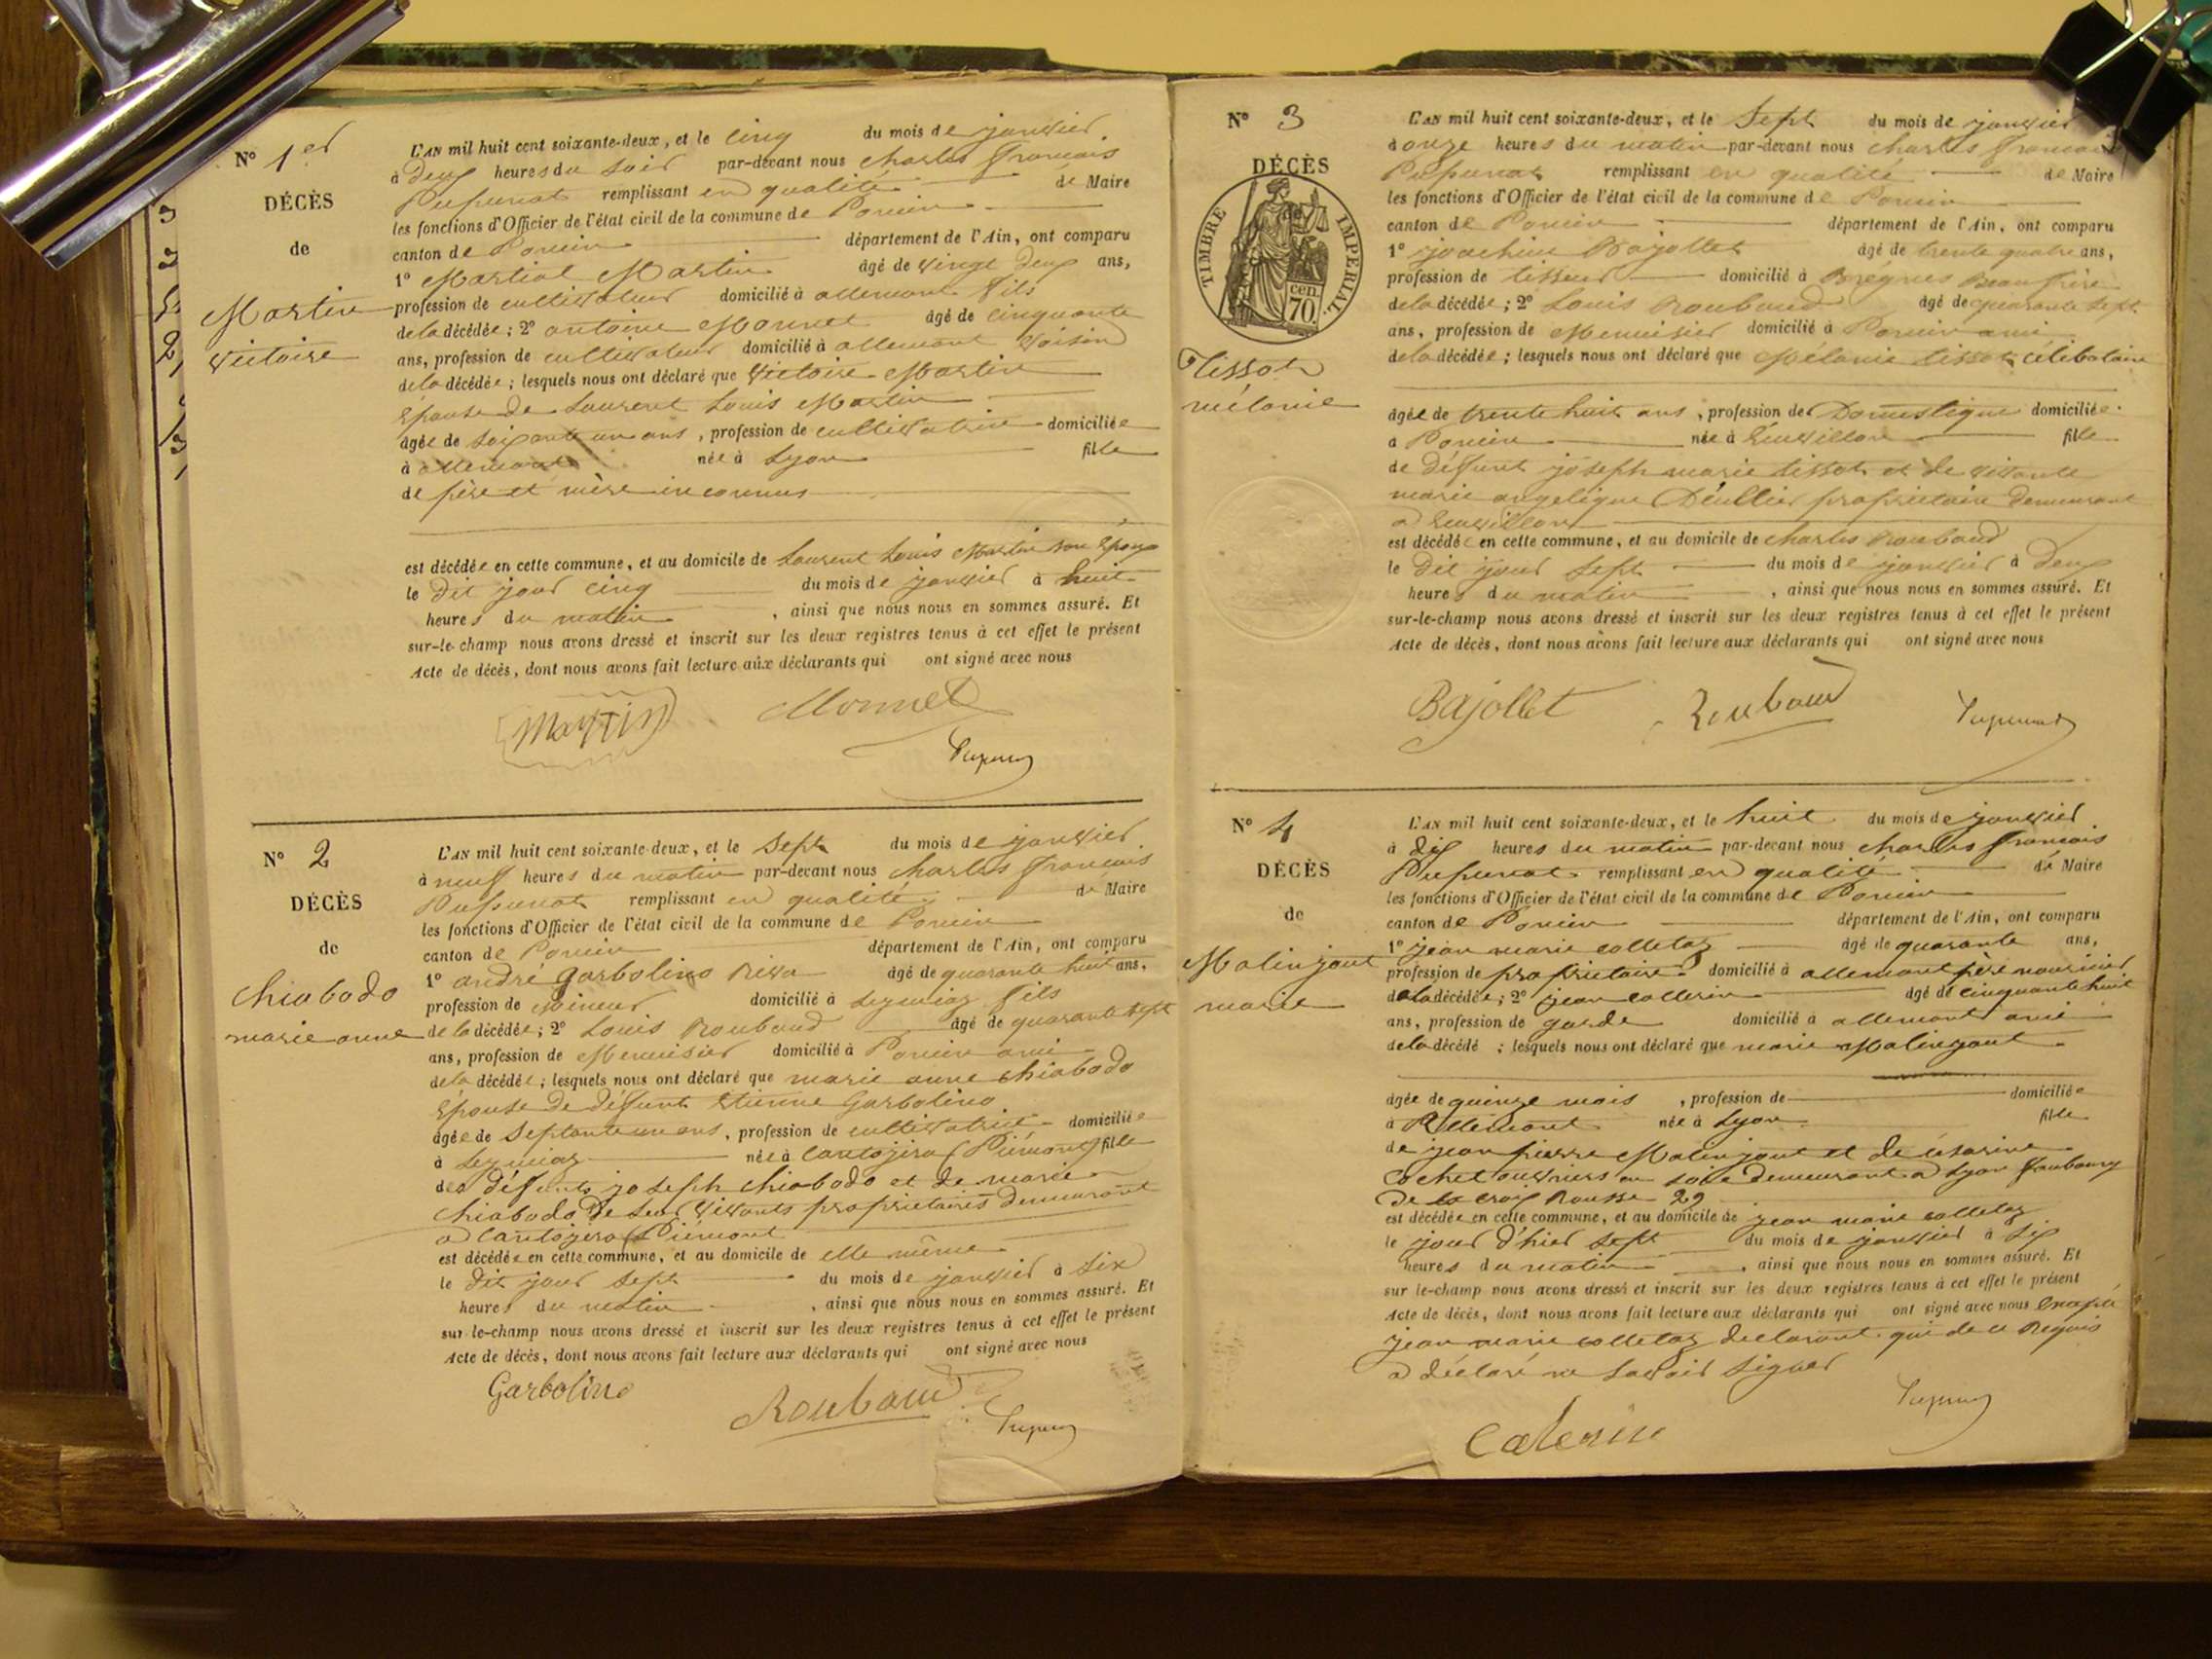 3
3
5
2
3
N° 1er
DÉCÈS
de
Martin
Victoire
L'AN mil huit cent soixante-deux, et le cinq du mois de janvier
à deux heures du soir par-devant nous charles françois
Pupunat remplissant en qualité de Maire
les fonctions d'Officier de l'état civil de la commune de Poncin
canton de Poncin département de l'Ain, ont comparu
1° Martial Martin âgé de vingt deux ans,
profession de cultivateur domicilié à allement fils
de la décédée ; 2° antoine Monnet âgé de cinquante
ans, profession de cultivateur domicilié à allement voisin
de la décédée ; lesquels nous ont déclaré que Victoire Martin
Épouse de Laurent Louis Martin
âgée de soixante un ans, profession de cultivatrice domiciliée
à allement née à Lyon fille
de père et mère inconnus
est décédée en cette commune, et au domicile de Laurent Louis Martin son Époux
le dit jour cinq du mois de janvier à huit
heures du matin, ainsi que nous nous en sommes assuré. Et
sur-le-champ nous avons dressé et inscrit sur les deux registres tenus à cet effet le présent
Acte de décès, dont nous avons fait lecture aux déclarants qui ont signé avec nous
Martin Monnet
Pupunat
N° 2
DÉCÈS
de
Chiabodo
marie anne
L'AN mil huit cent soixante-deux, et le Sept du mois de janvier
à neuf heures du matin par-devant nous charles françois
Pupunat remplissant en qualité de Maire
les fonctions d'Officier de l'état civil de la commune de Poncin
canton de Poncin département de l'Ain, ont comparu
1° andré Garbolino Riva âgé de quarante huit ans,
profession de Mineur domicilié à Leymiaz fils
de la décédée ; 2° Louis Roubaud âgé de quarante sept
ans, profession de Menuisier domicilié à Poncin ami
de la décédée ; lesquels nous ont déclaré que marie anne chiabodo
Épouse de défunt Etienne Garbolino
âgée de Septante un ans, profession de cultivatrice domiciliée
à Leymiaz née à Cantojira (Piémont) fille
des défunts joseph chiabodo et de marie
chiabodo de leur vivants propriétaires demeurant
a Cantojira (Piémont
est décédée en cette commune, et au domicile de elle même
le dit jour sept du mois de janvier à six
heures du matin, ainsi que nous nous en sommes assuré. Et
sur-le-champ nous avons dressé et inscrit sur les deux registres tenus à cet effet le présent
Acte de décès, dont nous avons fait lecture aux déclarants qui ont signé avec nous
Garbolino Roubaud Pupunat
N° 3
DÉCÈS
de
TIMBRE IMPÉRIAL
70 cen.
Tissot
mélanie
L'AN mil huit cent soixante-deux, et le Sept du mois de janvier
à onze heures du matin par-devant nous charles françois
Pupunat remplissant en qualité de Maire
les fonctions d'Officier de l'état civil de la commune de Poncin
canton de Poncin département de l'Ain, ont comparu
1° joachim Bajollet âgé de trente quatre ans,
profession de tisseur domicilié à Brégnes Beau frère
de la décédée ; 2° Louis Roubaud âgé de quarante Sept
ans, profession de Menuisier domicilié à Poncin ami
de la décédée ; lesquels nous ont déclaré que Mélanie tissot célibataire
âgée de trente huit ans, profession de Domestique domiciliée
à Poncin née à Leuvillon fille
de défunt joseph marie tissot et de vivante
marie angelique Deullier propriétaire demeurant
a Leuvillon
est décédée en cette commune, et au domicile de charles Roubaud
le dit jour sept du mois de janvier à deux
heures du matin, ainsi que nous nous en sommes assuré. Et
sur-le-champ nous avons dressé et inscrit sur les deux registres tenus à cet effet le présent
Acte de décès, dont nous avons fait lecture aux déclarants qui ont signé avec nous
Bajollet Roubaud Pupunat
N° 4
DÉCÈS
de
Malinjout
marie
L'AN mil huit cent soixante-deux, et le huit du mois de janvier
à dix heures du matin par-devant nous charles françois
Pupunat remplissant en qualité de Maire
les fonctions d'Officier de l'état civil de la commune de Poncin
canton de Poncin département de l'Ain, ont comparu
1° jean marie colletaz âgé de quarante ans,
profession de propriétaire domicilié à allement père nouricier
de la décédée ; 2° jean Callerin âgé de cinquante huit
ans, profession de garde domicilié à allement ami
de la décédé ; lesquels nous ont déclaré que marie Malinjout
âgée de quinze mois, profession de domiciliée
à Allement née à Lyon fille
de jean pierre Malinjout et de césarine
Cochet ouvriers en soie demeurant a Lyon faubourg
De la Croix Rousse 29
est décédée en cette commune, et au domicile de jean marie colletaz
le jour d'hier sept du mois de janvier à six
heures du matin, ainsi que nous nous en sommes assuré. Et
sur le-champ nous avons dressé et inscrit sur les deux registres tenus à cet effet le présent
Acte de décès, dont nous avons fait lecture aux déclarants qui ont signé avec nous Excepté
jean marie colletaz déclarant qui de ce Requis
a déclaré ne savoir signer
Pupunat
Calerin